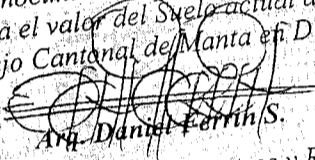 a el valor del Suelo actual
jo Cantonal de Manta en D
Arq. Daniel Ferrín S.